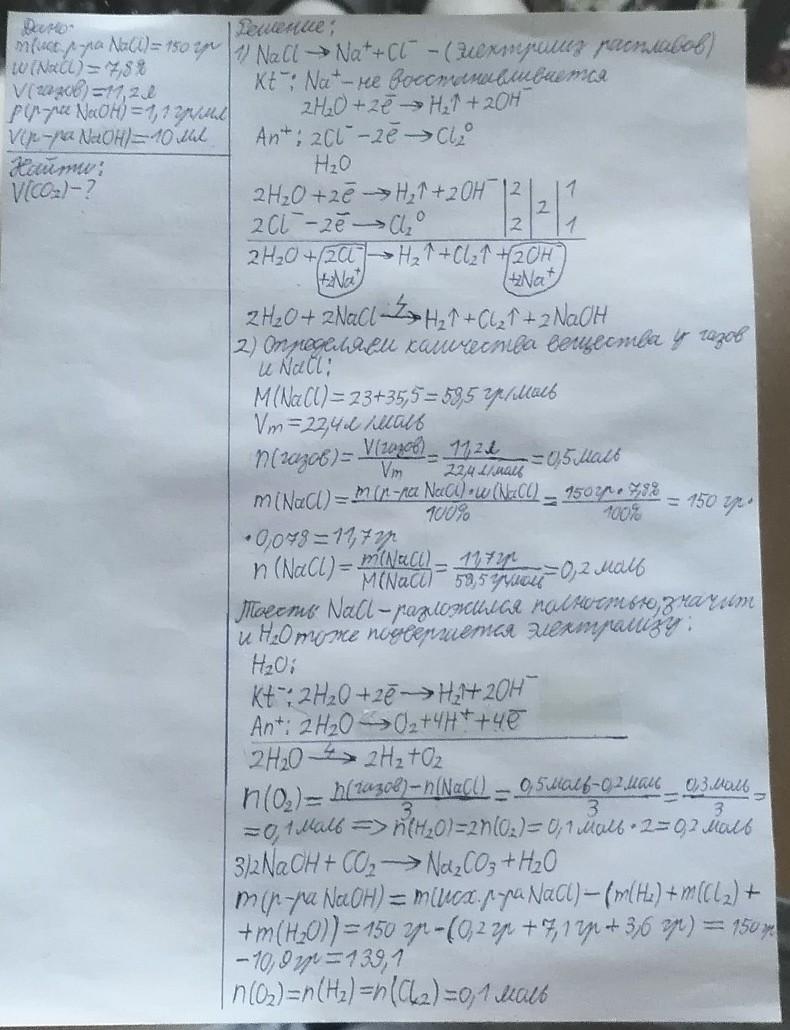 Дано:
m(исх.р-ра NaCl)=150 гр
w(NaCl)=7,8%
V(газов)=11,2л
p(р-ра NaOH)=1,1 гр/мл
V(р-ра NaOH)=10 мл
Найти:
V(CO₂)-?
Решение:
1) NaCl → Na⁺+Cl⁻ - (Электролиз расплавов)
Kt⁻: Na⁺- не восстанавливается
2H₂O+2ē → H₂↑+2OH⁻
An⁺: 2Cl⁻-2ē → Cl₂⁰
H₂O
2H₂O+2ē → H₂↑+2OH⁻ |2| |1
2Cl⁻-2ē → Cl₂⁰ |2|2|1
2H₂O+2Cl⁻ → H₂↑+Cl₂↑+2OH⁻
+2Na⁺ +2Na⁺
2H₂O+2NaCl → H₂↑+Cl₂↑+2NaOH
2) Определяем количества вещества у газов
и NaCl:
M(NaCl)=23+35,5=58,5 гр/моль
Vm=22,4л/моль
n(газов)=V(газов)/Vm=11,2л/22,4л/моль=0,5моль
m(NaCl)=m(р-ра NaCl)·w(NaCl)/100%=150гр·7,8%/100%=150 гр·
·0,078=11,7гр
n(NaCl)=m(NaCl)/M(NaCl)=11,7гр/58,5гр/моль=0,2 моль
Тоесть NaCl-разложился полностью, значит
и H₂O тоже подвергается электролизу:
H₂O:
Kt⁻: 2H₂O+2ē → H₂↑+2OH⁻
An⁺: 2H₂O → O₂+4H⁺+4ē
2H₂O → 2H₂+O₂
n(O₂)=n(газов)-n(NaCl)/3=0,5моль-0,2моль/3=0,3моль/3=
=0,1моль => n(H₂O)=2n(O₂)=0,1моль·2=0,2моль
3) 2NaOH+CO₂ → Na₂CO₃+H₂O
m(р-ра NaOH)=m(исх.р-ра NaCl)-(m(H₂)+m(Cl₂)+
+m(H₂O))=150 гр-(0,2гр+7,1гр+3,6 гр)=150гр
-10,9гр=139,1
n(O₂)=n(H₂)=n(Cl₂)=0,1моль